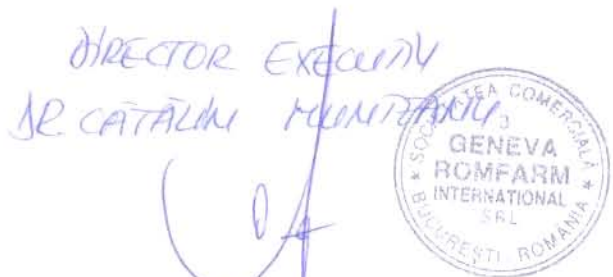 DIRECTOR EXECUTIV
DR CĂTĂLIN MUNTEANU
SOCIETATEA COMERCIALĂ
3
GENEVA
ROMFARM
INTERNATIONAL
SRL
BUCUREȘTI - ROMANIA